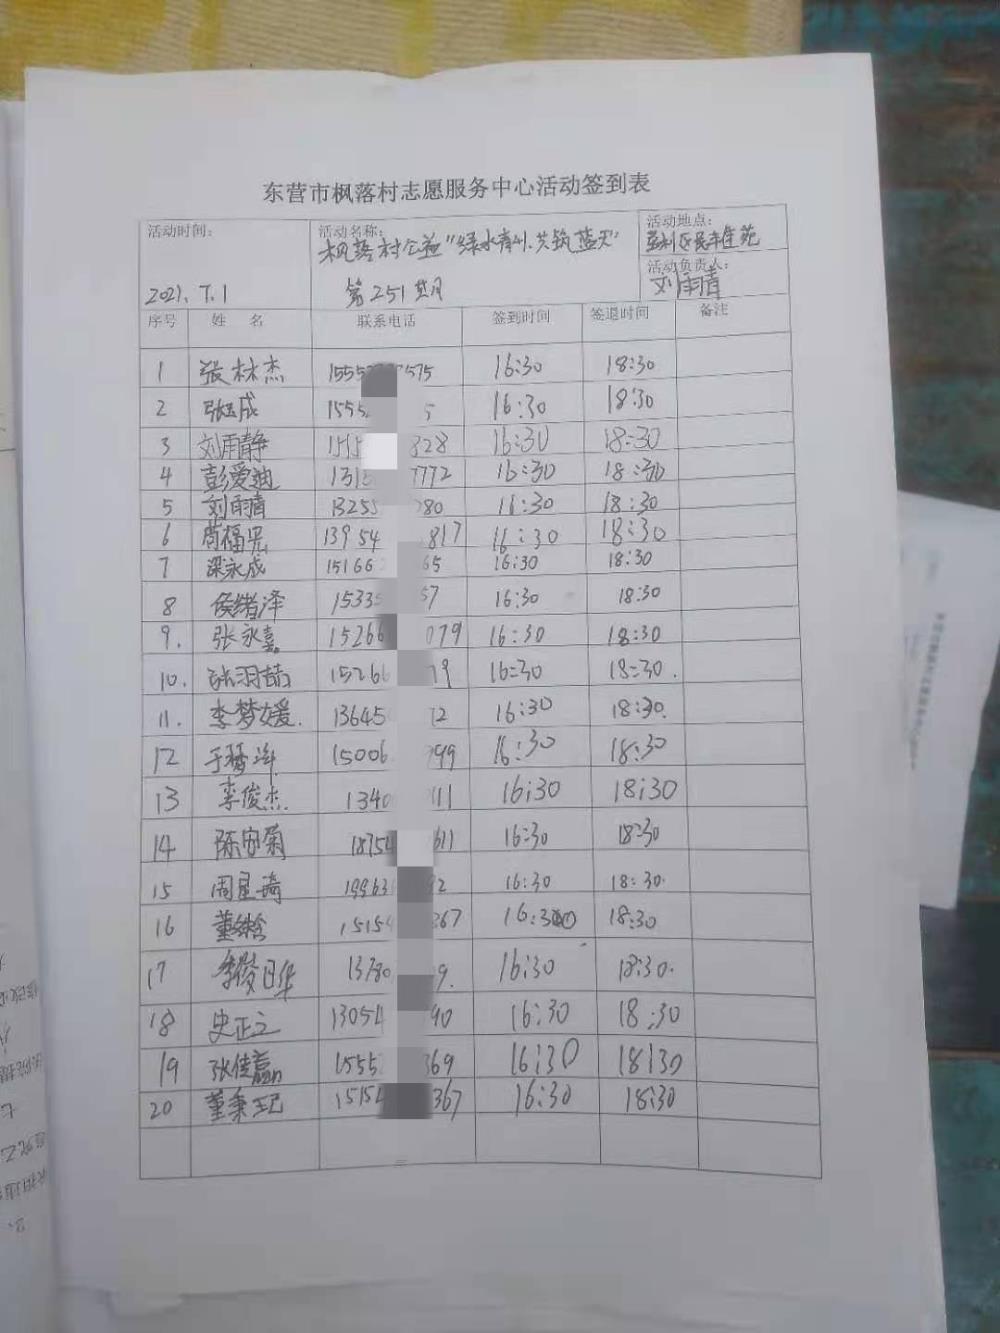 东营市枫落村志愿服务中心活动签到表
活动时间: 2021.7.1
活动名称: 枫落村公益"绿水青山.共筑蓝天"
第251期
活动地点: 垦利区民丰佳苑
活动负责人: 刘雨清
序号 姓 名 联系电话 签到时间 签退时间 备注
1 张林杰 1555 7575 16:30 18:30
2 张成 1555 5 16:30 18:30
3 刘雨静 1515 828 16:30 18:30
4 彭爱迪 1315 7772 16:30 18:30
5 刘雨清 13255 280 16:30 18:30
6 福 13954 817 16:30 18:30
7 梁永成 15166 65 16:30 18:30
8 侯绪泽 1533 57 16:30 18:30
9. 张永嘉 15266 079 16:30 18:30
10. 张羽 15266 79 16:30 18:30.
11. 李梦媛. 13645 72 16:30 18:30.
12 于 15006 999 16:30 18:30
13 李俊杰 1340 111 16:30 18:30
14 陈安菊 18754 611 16:30 18:30
15 周星 19963 92 16:30 18:30.
16 董 15154 367 16:30 18:30
17 李 13780 9. 16:30 18:30.
18 史正之 13054 90 16:30 18:30
19 张佳 1555 369 16:30 18:30
20 董秉 15154 367 16:30 18:30